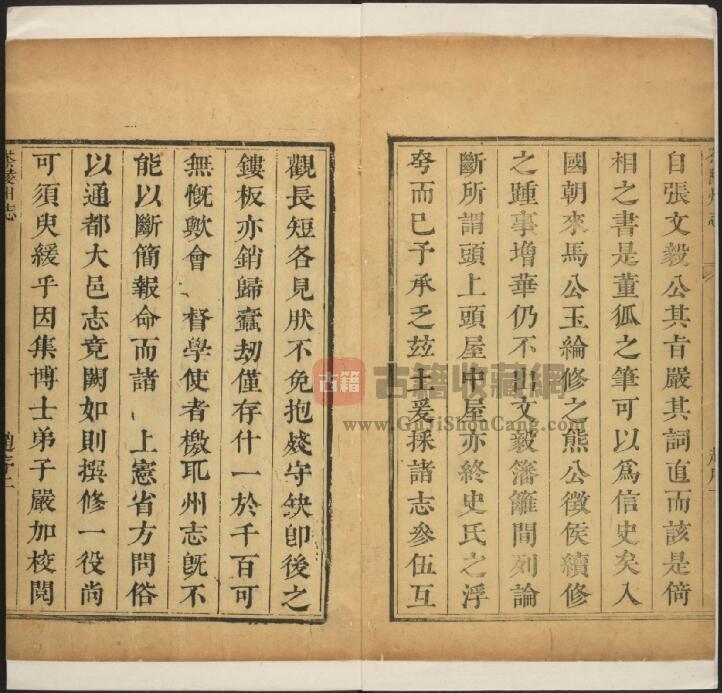 自張文毅公其㫖嚴其詞直而該是倚
相之書是董狐之筆可以爲信史矣入
國朝來馬公玉綸修之熊公徵侯續修
之踵事增華仍不出文毅籓籬間列論
斷所謂頭上頭屋中屋亦終史氏之浮
夸而已予承乏玆土爰採諸志參伍互
觀長短各見狀不免抱殘守缺卽後之
鏤板亦銷歸蠹刼僅存什一於千百可
無慨歟會 督學使者檄取州志旣不
能以斷簡報命而諸 上憲省方問俗
以通都大邑志竟闕如則撰修一役尚
可須臾緩乎因集博士弟子嚴加校閱
茶陵州志
古籍
古籍收藏網
www.GuJiShouCang.com